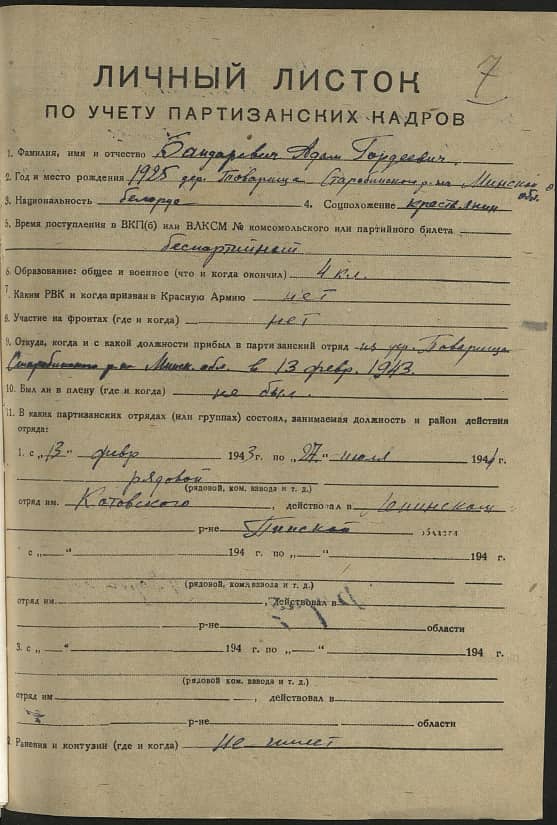 7
ЛИЧНЫЙ ЛИСТОК
ПО УЧЕТУ ПАРТИЗАНСКИХ КАДРОВ
1. Фамилия, имя и отчество Бандаревич Адам Гордеевич.
2. Год и место рождения 1925 дер. Товарища Старобинского р-на Минской
обл.
3. Национальность белорус 4. Соцположение крестьянин
5. Время поступления в ВКП(б) или ВЛКСМ № комсомольского или партийного билета
беспартийный
6. Образование: общее и военное (что и когда окончил) 4 кл.
7. Каким РВК и когда призван в Красную Армию нет
8. Участие на фронтах (где и когда) нет
9. Откуда, когда и с какой должности прибыл в партизанский отряд из дер. Товарища
Старобинского р-на Минск. обл. в 13 февр. 1943.
10. Был ли в плену (где и когда) не был.
11. В каких партизанских отрядах (или группах) состоял, занимаемая должность и район действия
отряда:
1. с „13" февр 1943 г. по „27" июля 1944 г.
рядовой
(рядовой, ком. взвода и т. д.)
отряд им. Котовского, действовал в Ленинском
р-не Пинской области
с „ — " 194 г. по „ — " 194 г.
(рядовой, ком. взвола и т. д.)
отряд им. , действовал в
р-не области
3. с „ — " 194 г. по „ — " 194 г.
(рядовой ком. взвода и т. д.)
отряд им , действовал в
р-не области
Ранения и контузии (где и когда) не имеет